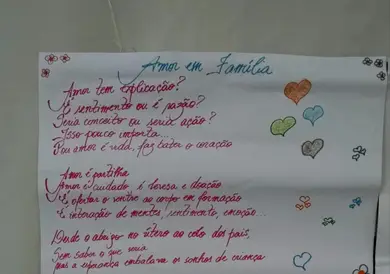 Amor em Família
Amor tem explicação?
É sentimento ou é paixão?
Seria conceito ou seria ação?
Isso pouco importa...
Pois amor é vida, faz bater o coração
Amor é partilha
Amor é cuidado é beleza e doação
É ofertar o ventre ao corpo em formação
É interação de mentes, sentimento, emoção...
Desde o abrigo no útero ao colo dos pais,
Sem saber o que seria
Mas a esperança embalava os sonhos de criança